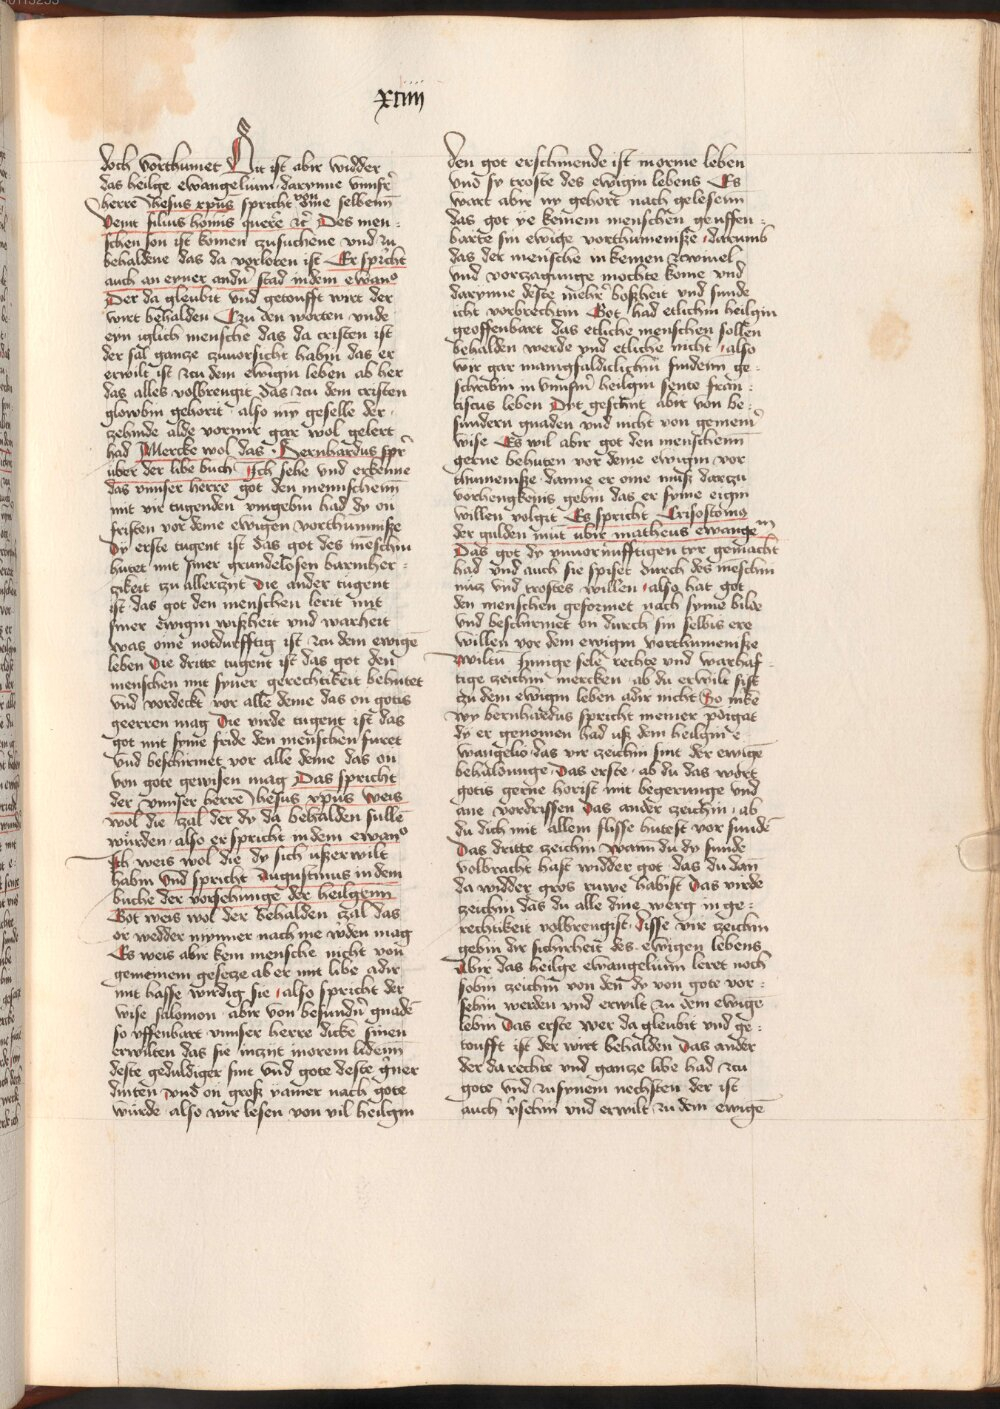 xciiii
doch vorthumet Nit ist abir widder
das heilge ewangelium darynne vnnsr̄
herre jhesus xpūs spricht von ōme selbenn
venit filius hōmis quere rc̄ Des men-
schen son ist komen czusuchene vnd zu
behaldene das da vorloren ist Er spricht
auch an eyner andn̄ stad in dem ewan°
Der da gleubit vnd getoufft wirt der
wirt behalden Czu den worten vnde
eyn iglich mensche das da cristen ist
der sal gancze zuuorsicht habin das er
erwilt ist zcu dem ewigin leben ab her
das alles volbrengit das zcu dem cristen
gloubin gehorit also my geselle der
zcehinde alde vormir gar wol gelert
had Mercke wol das Bernhardus spr̄
ubir der libe buch Ich sehe vnd erkenne
das vnnser herre got den mennschenn
mit vir tugenden vmgebin had dy on
fristen vor deme ewigen vorthumnisße
Dy erste tugent ist das got des meschin
hutet mit siner grundelosen barmher-
czikeit zu allerzyt Die ander tugent
ist das got den menschen lerit mit
siner ewigin wißheit vnd warheit
was ome notdurfftig ist zcu dem ewigē
leben Die dritte tugent ist das got den
menschen mit syner gerechtikeit behutet
vnd vordeckt vor alle deme das on gotis
geerren mag Die virde tugent ist das
got mit syme fride den menschen furet
vnd beschirmet vor alle deme das on
von gote gewisen mag Das spricht
der vnnser herre jhesus xpūs Weis
wol die zal der dy da behalden sulle
wurden also er spricht in dem ewan°
Ich weis wol die dy sich ußerwilt
habin vnd spricht Augustinus in dem
buche der vorsehunige der heilgenn
Got weis wol der behalden czal das
or wedder mynner nach me wōden mag
Es weis abir kein mensche nicht von
gemeinem gesetze ab er mit libe adir
mit hasse wirdig sie also spricht der
wise salomon abir von besundn̄ gnadē
so uffenbart vnnser herre dicke sinen
erwilten das sie in irem lidenn
deste geduldiger sint vnd gote deste gner
dinten vnd on groß yamer nach gote
wurde also wir lesen von vil heilgin
den got erschinende ist in orme leben
vnd sy troste des ewigin lebens Es
wart abir ny gehort nach gelesenn
das got ye keinem menschen geuffen-
barte sin ewige vorthumenisße darumb
das der mensche in keinen zcwiuel
vnd vorczagunge mochte kome vnd
darynne deste mehr̄ boßheit vnd sunde
icht vorbrechtin Got had etlichin heilgin
geoffenbart das etliche menschen sollen
behalden werde vnd etliche nicht also
wir gar manigfaldiclichin findenn ge-
schribin in vnnsm̄ heilgin sente fran-
ciscus leben Dyt geschint abir von be-
sundern gnaden vnd nicht von gemein̄
wise Es wil abir got den menschenn
gerne behuten vor deme ewigin vor
thumenisße danne er ome muß darczu
vorhengkenis gebin das er syme eigin
willen volgit Es spricht Crisostomus
der gulden mut ubir matheus ewangem̄
Das got dy vnuornufftigen tyr gemacht
had vnd auch sie spiset durch des meschin
nucz vnd trostes willen also hat got
den menschen geformet nach syme bilde
vnd beschirmet on durch sin selbis ere
willen vor dem ewigin vorthumenisße
Wiltu Innige sele rechte vnd warhaf-
tige zeichin mercken ab du erwilt sist
czu dem ewigin leben adir nicht So mke
wy bernhardus spricht in einer pōigat
dy er genomen had uß dem heilgin e-
wangelio das vir zeichin sint der ewigē
behaldunge Das erste ab du das wort
gotis gerne horist mit begerunge vnd
ane vordrissen Das ander zeichin ab
du dich mit allem flisse hutest vor sundē
Das dritte zeichin wann du dy sunde
volbracht hast widder got das du dan
da widder gros ruwe habist Das virde
zeichin das du alle dine werg in ge-
rechtikeit volbrengist Disse vir zeichin
gebin dir sichirheit des ewigen lebens
Abir das heilge ewangelium leret noch
sobin zeichin von den dy von gote vor-
sehin werden vnd erwilt zu dem ewigē
lebin Das erste wer da gleubit vnd ge-
toufft ist der wirt behalden Das ander
der da rechte vnd gancze libe had zcu
gote vnd zu synem nechsten der ist
auch v̄sehin vnd erwilt zu dem ewigē